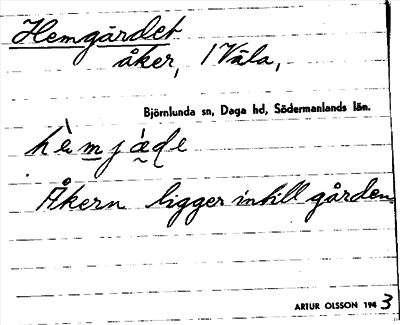 Hemgärdet
åker, 1 Väla,
Björnlunda sn, Daga hd, Södermanlands län.
hèmjäḍe
Åkern ligger intill gården.
ARTUR OLSSON 1943